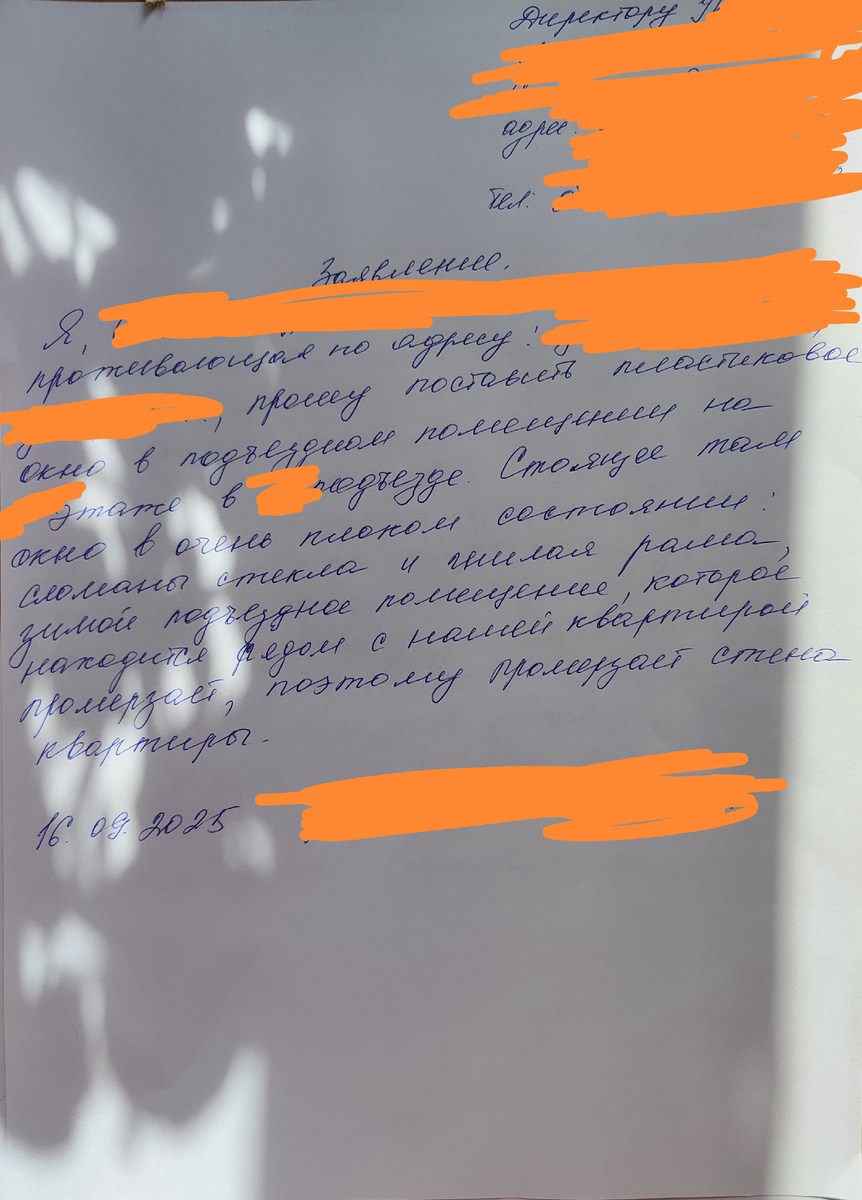 Директору
адрес:
тел:
Заявление.
Я,
проживающая по адресу:
, прошу поставить пластиковое
окно в подъездном помещении на
этаже в подъезде. Стоящее там
окно в очень плохом состоянии:
сломаны стекла и гнилая рама,
зимой подъездное помещение, которое
находится рядом с нашей квартирой
промерзает, поэтому промерзает стена
квартиры.
16.09.2025